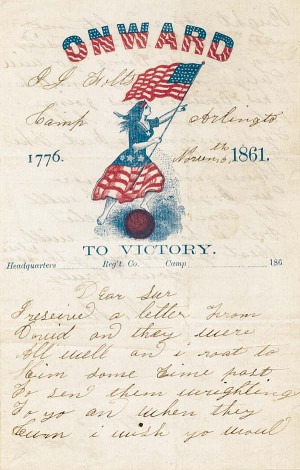 ONWARD
Camp Arlington
1776. Novem 1861.
TO VICTORY.
Headquarters Reg't. Co. Camp 186
Dear Sur
I reseived a letter From
David an they were
All well an i roat to
him some time past
To sen them wrighting
To yo an when they
Cum i wish yo woul